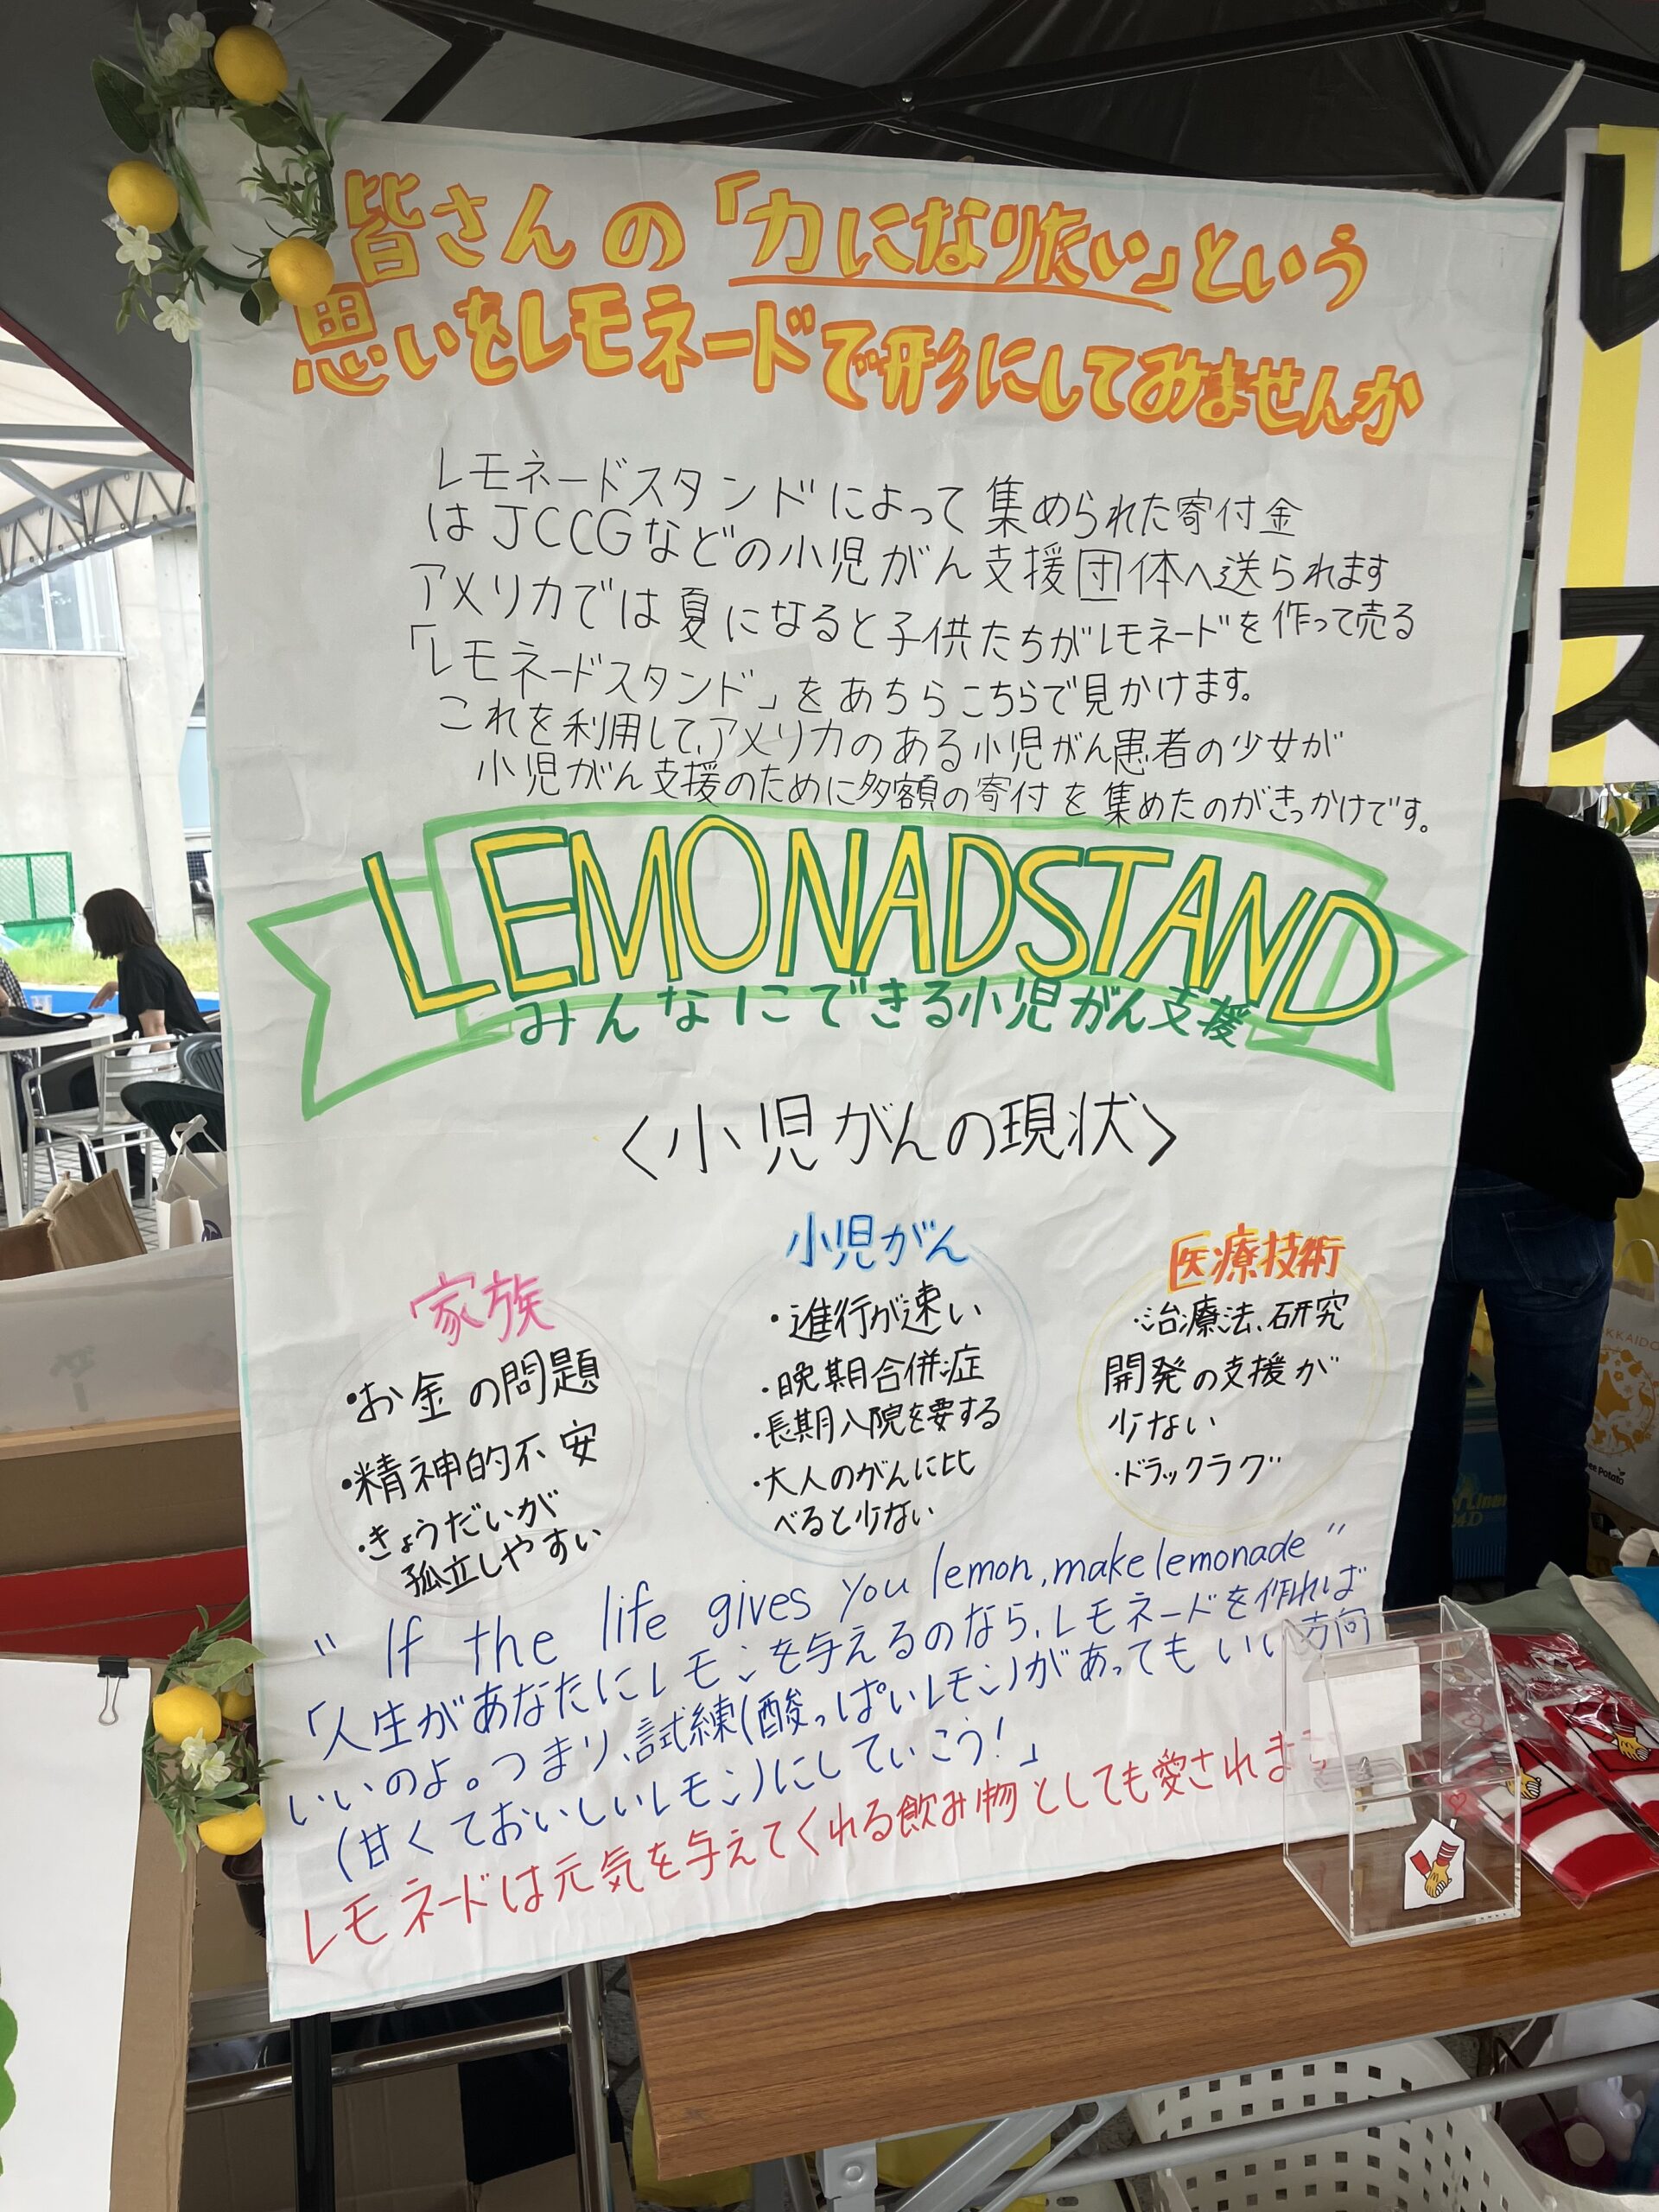 皆さんの「力になりたい」という
思いをレモネードで形にしてみませんか
レモネードスタンドによって集められた寄付金
はJCCGなどの小児がん支援団体へ送られます
アメリカでは夏になると子供たちがレモネードを作って売る
「レモネードスタンド」をあちらこちらで見かけます。
これを利用して、アメリカのある小児がん患者の少女が
小児がん支援のために多額の寄付を集めたのがきっかけです。
LEMONADSTAND
みんなにできる小児がん支援
〈小児がんの現状〉
家族
・お金の問題
・精神的不安
・きょうだいが
孤立しやすい
小児がん
・進行が速い
・晩期合併症
・長期入院を要する
・大人のがんに比
べると少ない
医療技術
・治療法、研究
開発の支援が
少ない
・ドラックラグ
"If the life gives you lemon, make lemonade"
「人生があなたにレモンを与えるのなら、レモネードを作れば
いいのよ。つまり、試練(酸っぱいレモン)があってもいい方向
(甘くておいしいレモン)にしていこう!」
レモネードは元気を与えてくれる飲み物としても愛されま
レ
ス